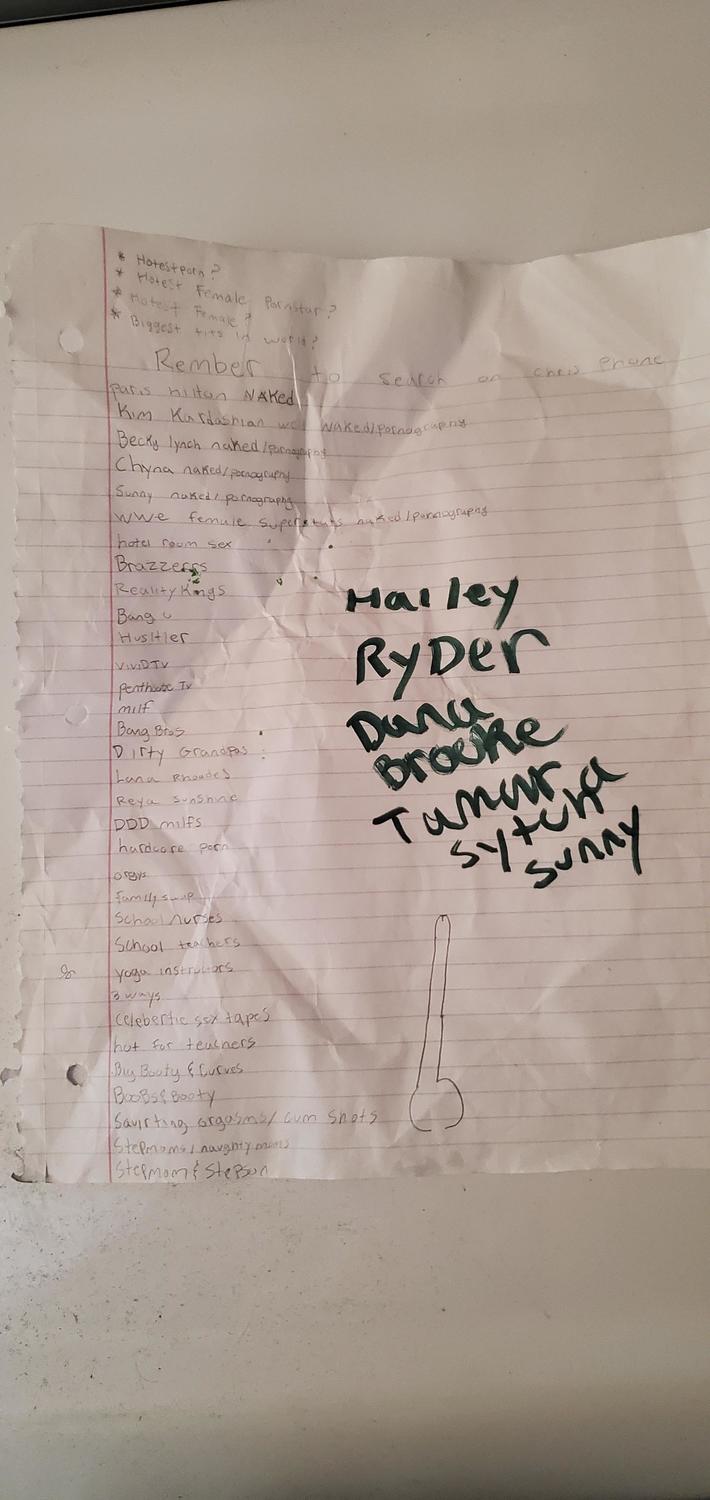 * Hotestporn?
* Hotest Female Pornstar?
* Hotest Female?
* Biggest tits in world?
Rember to search on chris Phone
paris hilton NAKED
Kim Kardashian naked/pornography
Becky lynch naked/pornography
Chyna naked/pornography
Sunny naked/pornography
WWE female superstars naked/pornography
hotel room sex
Brazzerss
Reality Kings
Bang
Hustler
VIVIDTV
penthouse Tv
milf
Bang Bros
Dirty Grandpas
Lana Rhoades
Reya sunshine
DDD milfs
hardcore porn
orgys
family swap
School nurses
School teachers
yoga instructors
3 ways
celebertic sex tapes
hot for teachers
Big Booty & Curves
BooBs & Booty
Squirting orgasms/cum shots
Stepmoms/naughty moms
Stepmom & Stepson
Hailey
RyDer
Dana
Brooke
Tamar
Sytch
Sunny